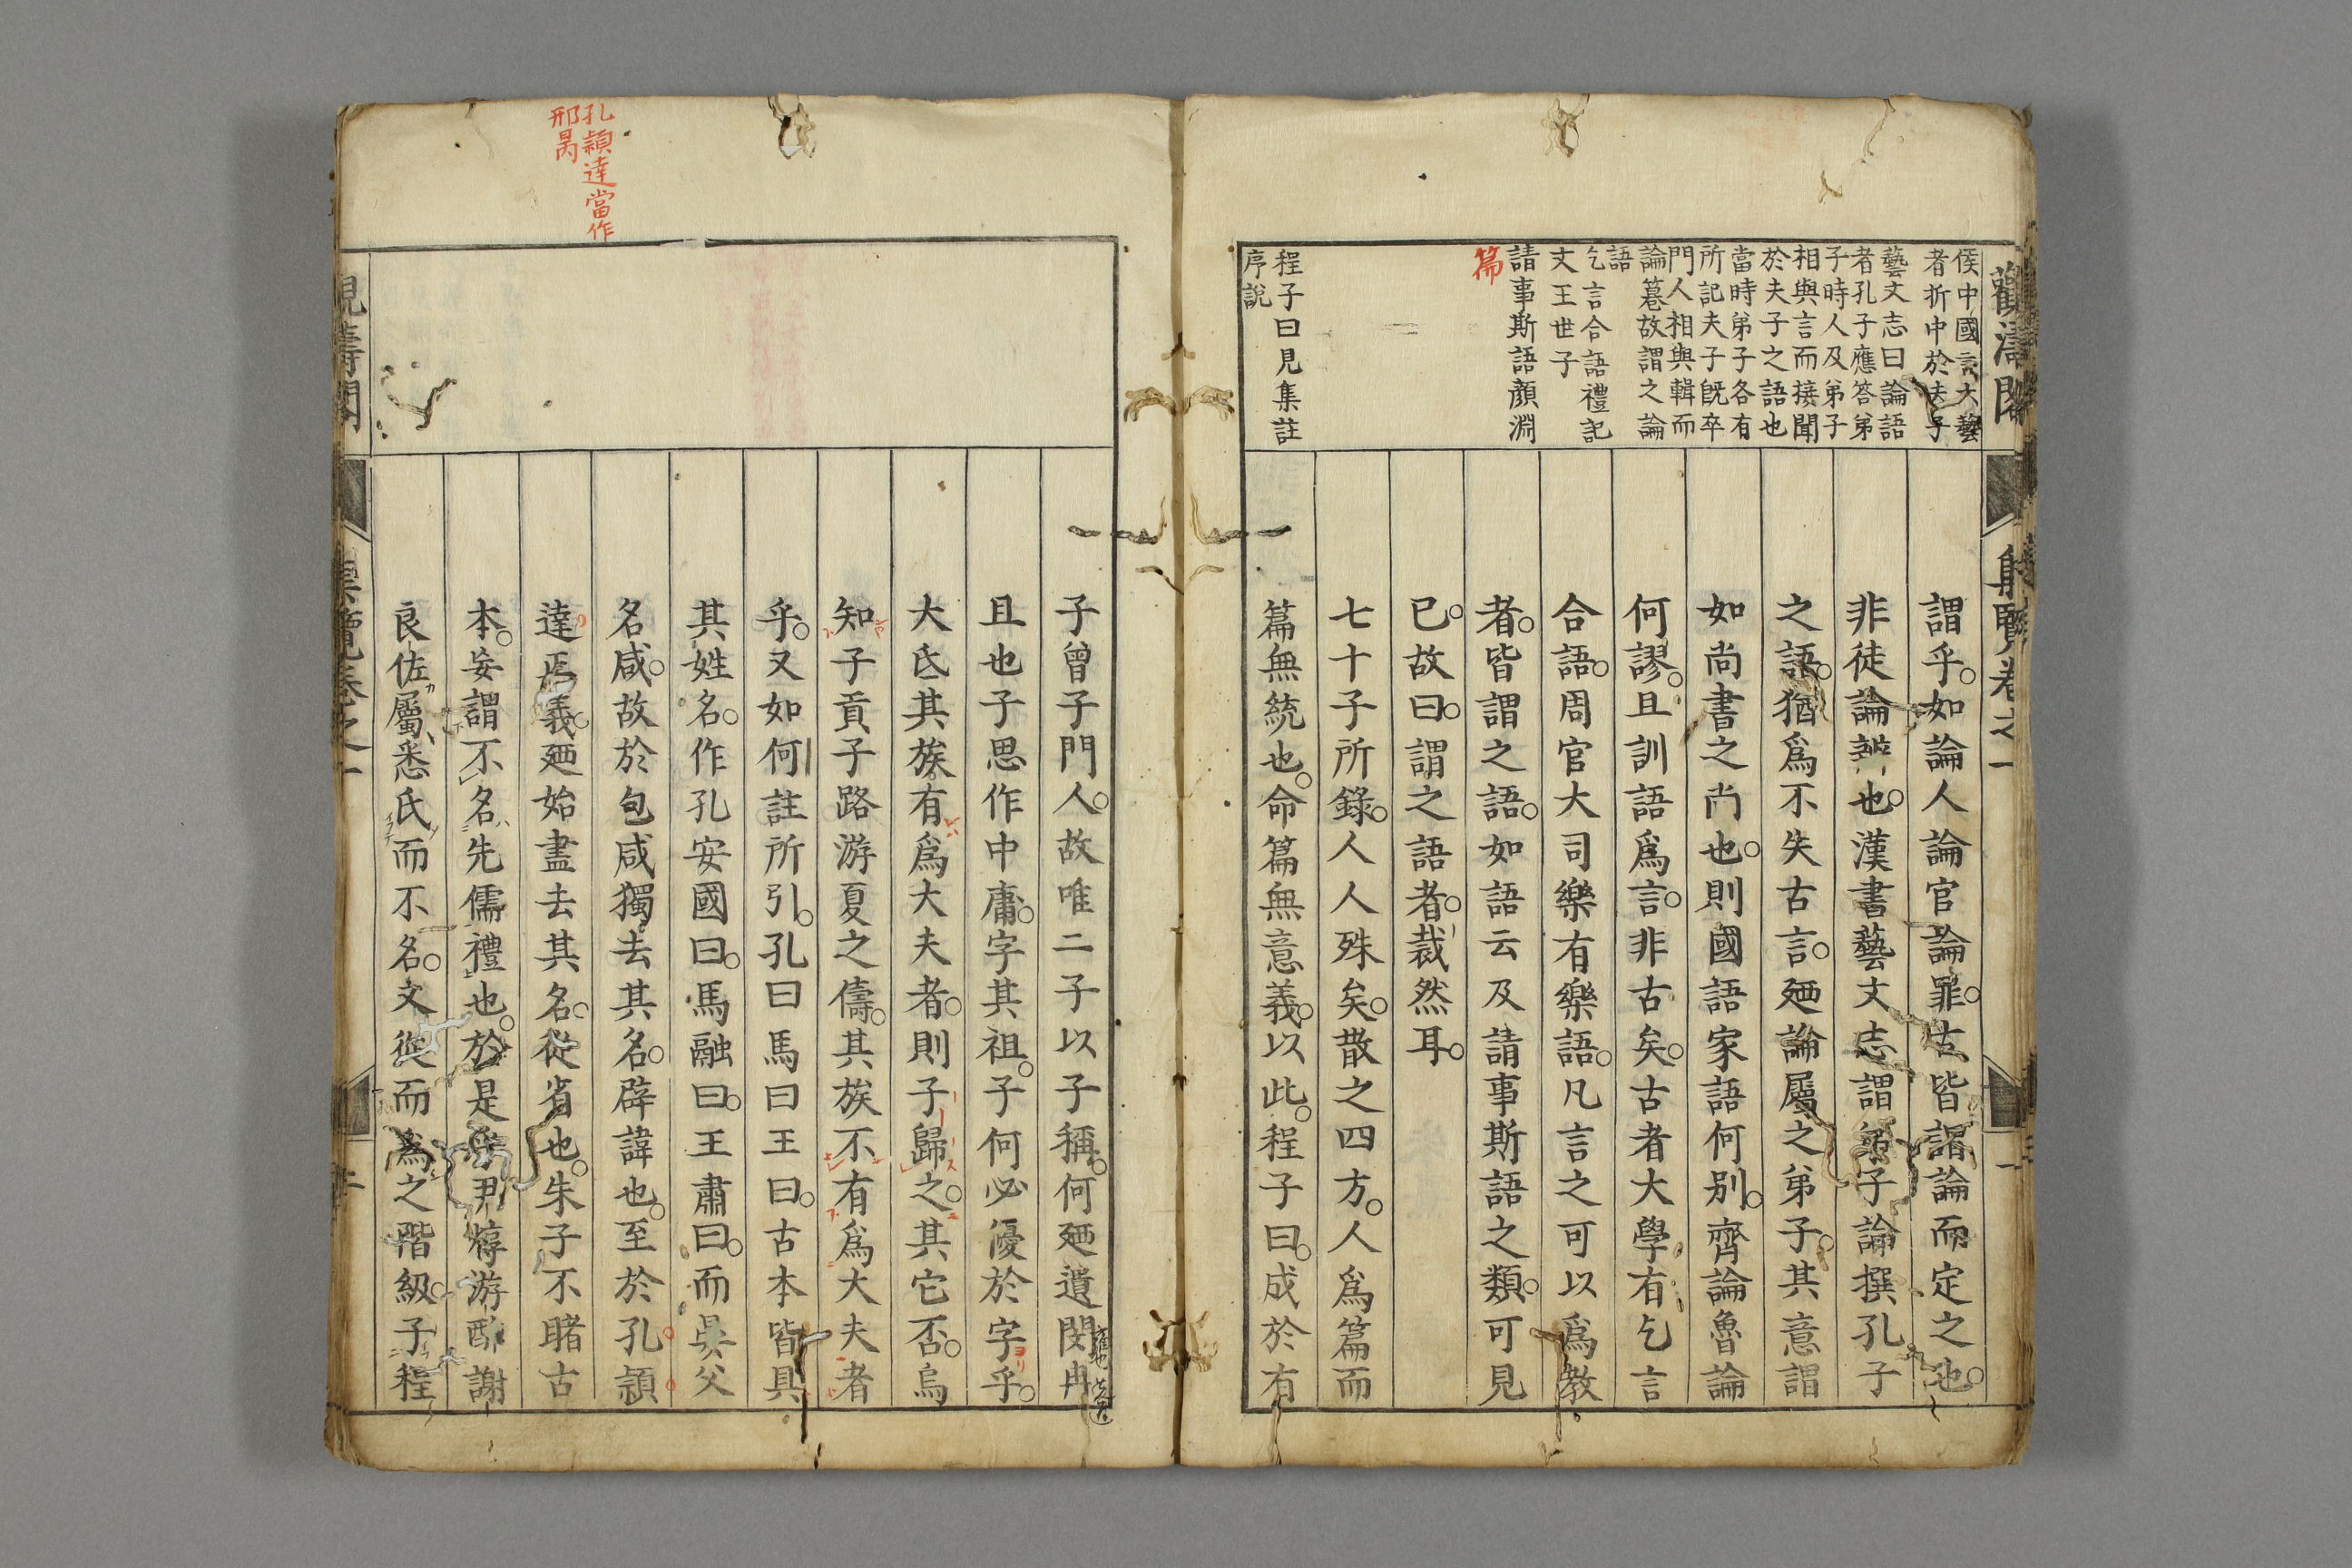 侯中國言六藝
者折中於夫子
藝文志曰論語
者孔子應答弟
子時人及弟子
相與言而接聞
於夫子之語也
當時弟子各有
所記夫子既卒
門人相與輯而
論篹故謂之論
語
乞言合語禮記
文王世子
請事斯語顏淵
篇
程子曰見集註
序說
謂乎。如論人論官論罪。古皆謂論而定之也。
非徒論辨也。漢書藝文志謂弟子論撰孔子
之語。猶爲不失古言。廼論屬之弟子。其意謂
如尚書之尚也。則國語家語何別。齊論魯論
何謬。且訓語爲言。非古矣。古者大學有乞言
合語。周官大司樂有樂語。凡言之可以爲教
者。皆謂之語。如語云及請事斯語之類。可見
已。故曰。謂之語者。裁然耳。
七十子所錄。人人殊矣。散之四方。人爲篇而
篇無統也。命篇無意義。以此。程子曰。成於有
子曾子門人。故唯二子以子稱。何廼遺閔冉
且也子思作中庸。字其祖。子何必優於字乎。
大氐其族有爲大夫者。則子歸之。其它否。烏
知子貢子路游夏之儔。其族不有爲大夫者
乎。又如何註所引。孔曰馬曰王曰。古本皆具
其姓名。作孔安國曰。馬融曰。王肅曰。而吳父
名咸。故於包咸獨去其名。辟諱也。至於孔穎
達焉義。廼始盡去其名。從省也。朱子不睹古
本。妄謂不名先儒禮也。於是乎尹焞游酢謝
良佐屬悉氏而不名。文從而爲之階級。子程
孔穎達當作
邢昺
觀濤閣
集覽卷之一
二